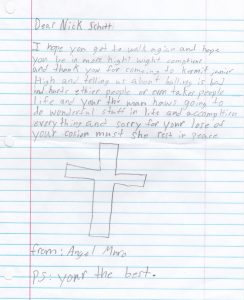 Dear Nick Schott
I hope you get to walk agien and hope
you be in more hight wight compitions
and thank you for comeing to Kermit junior
High and telling us about bulling is bad
and hurts ethier people or even taker people
life and your the man how's going to
do wonderful stuff in life and accomplish
everything and sorry for your lose of
your cosion must she rest in peace
from: Angel
Ps: your the best.